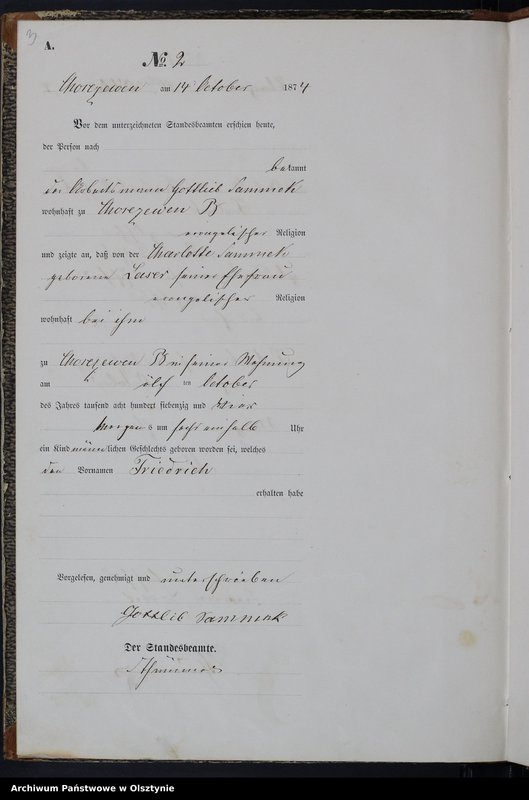 3
A.
№ 2
Chorzewen am 14 October 1874
Vor dem unterzeichneten Standesbeamten erschien heute,
der Person nach
bekannt
der Arbeitsmann Gottlieb Sammek
wohnhaft zu Chorzewen B
evangelischer Religion
und zeigte an, daß von der Charlotte Sammek
geborene Laser seiner Ehefrau
evangelischer Religion
wohnhaft bei ihm
zu Chorzewen B in seiner Wohnung
am elf ten October
des Jahres tausend acht hundert siebenzig und vier
Morgens um sechs einhalb Uhr
ein Kind männlichen Geschlechts geboren worden sei, welches
den Vornamen Friedrich
erhalten habe
Vorgelesen, genehmigt und unterschrieben
Gottlieb Sammek
Der Standesbeamte.
Archiwum Państwowe w Olsztynie